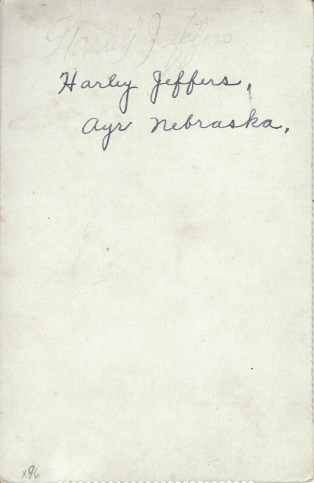 Harley Jeffers
Harley Jeffers,
Ayr Nebraska.
x96